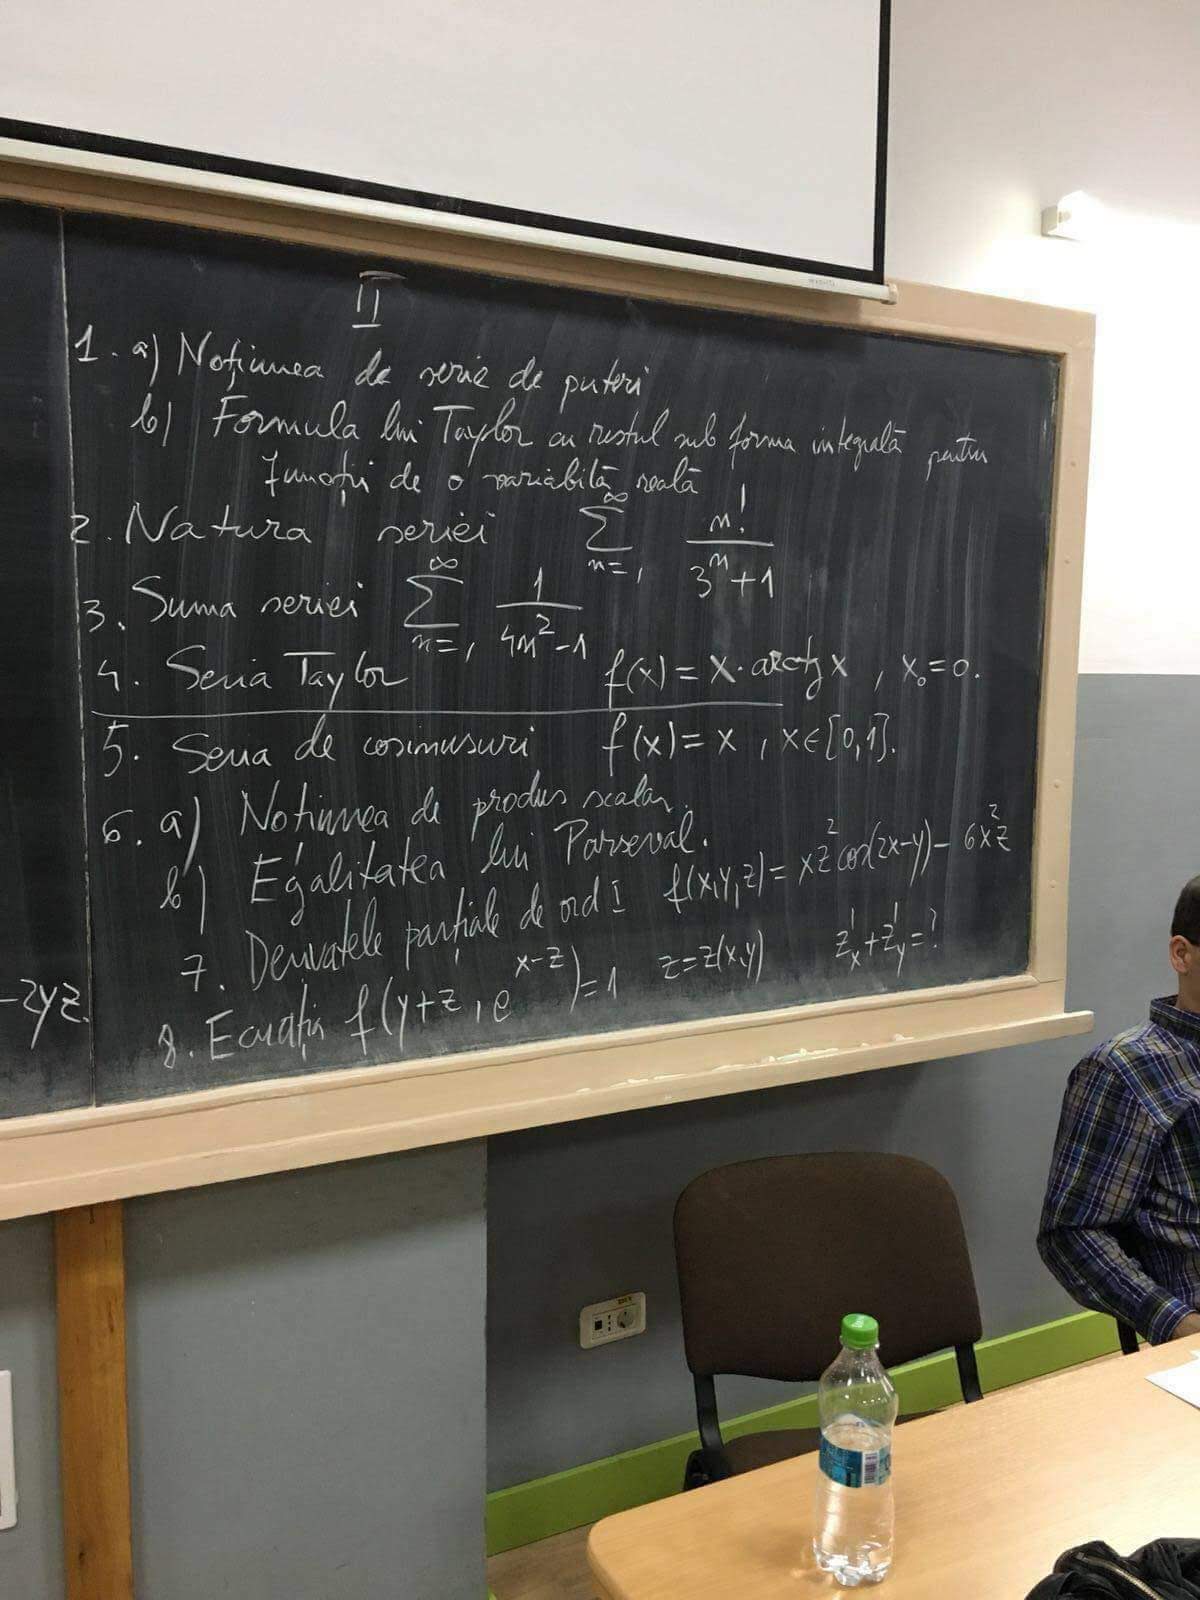 II
1. a) Noțiunea de serie de puteri
b) Formula lui Taylor cu restul sub forma integrală pentru
funcții de o variabilă reală
2. Natura seriei ∑_{n=1}^{∞} n!/(3^n+1)
3. Suma seriei ∑_{n=1}^{∞} 1/(4n²-1)
4. Seria Taylor f(x) = x·arctg x , x₀=0.
5. Seria de cosinusuri f(x)=x , x∈[0,1].
6. a) Noțiunea de produs scalar.
b) Egalitatea lui Parseval.
7. Derivatele parțiale de ord I f(x,y,z)= xz²cos(2x-y) - 6x²z
8. Ecuația f(y+z, e^{x-z})=1 z=z(x,y) z'ₓ+z'ᵧ=?
-2yz.